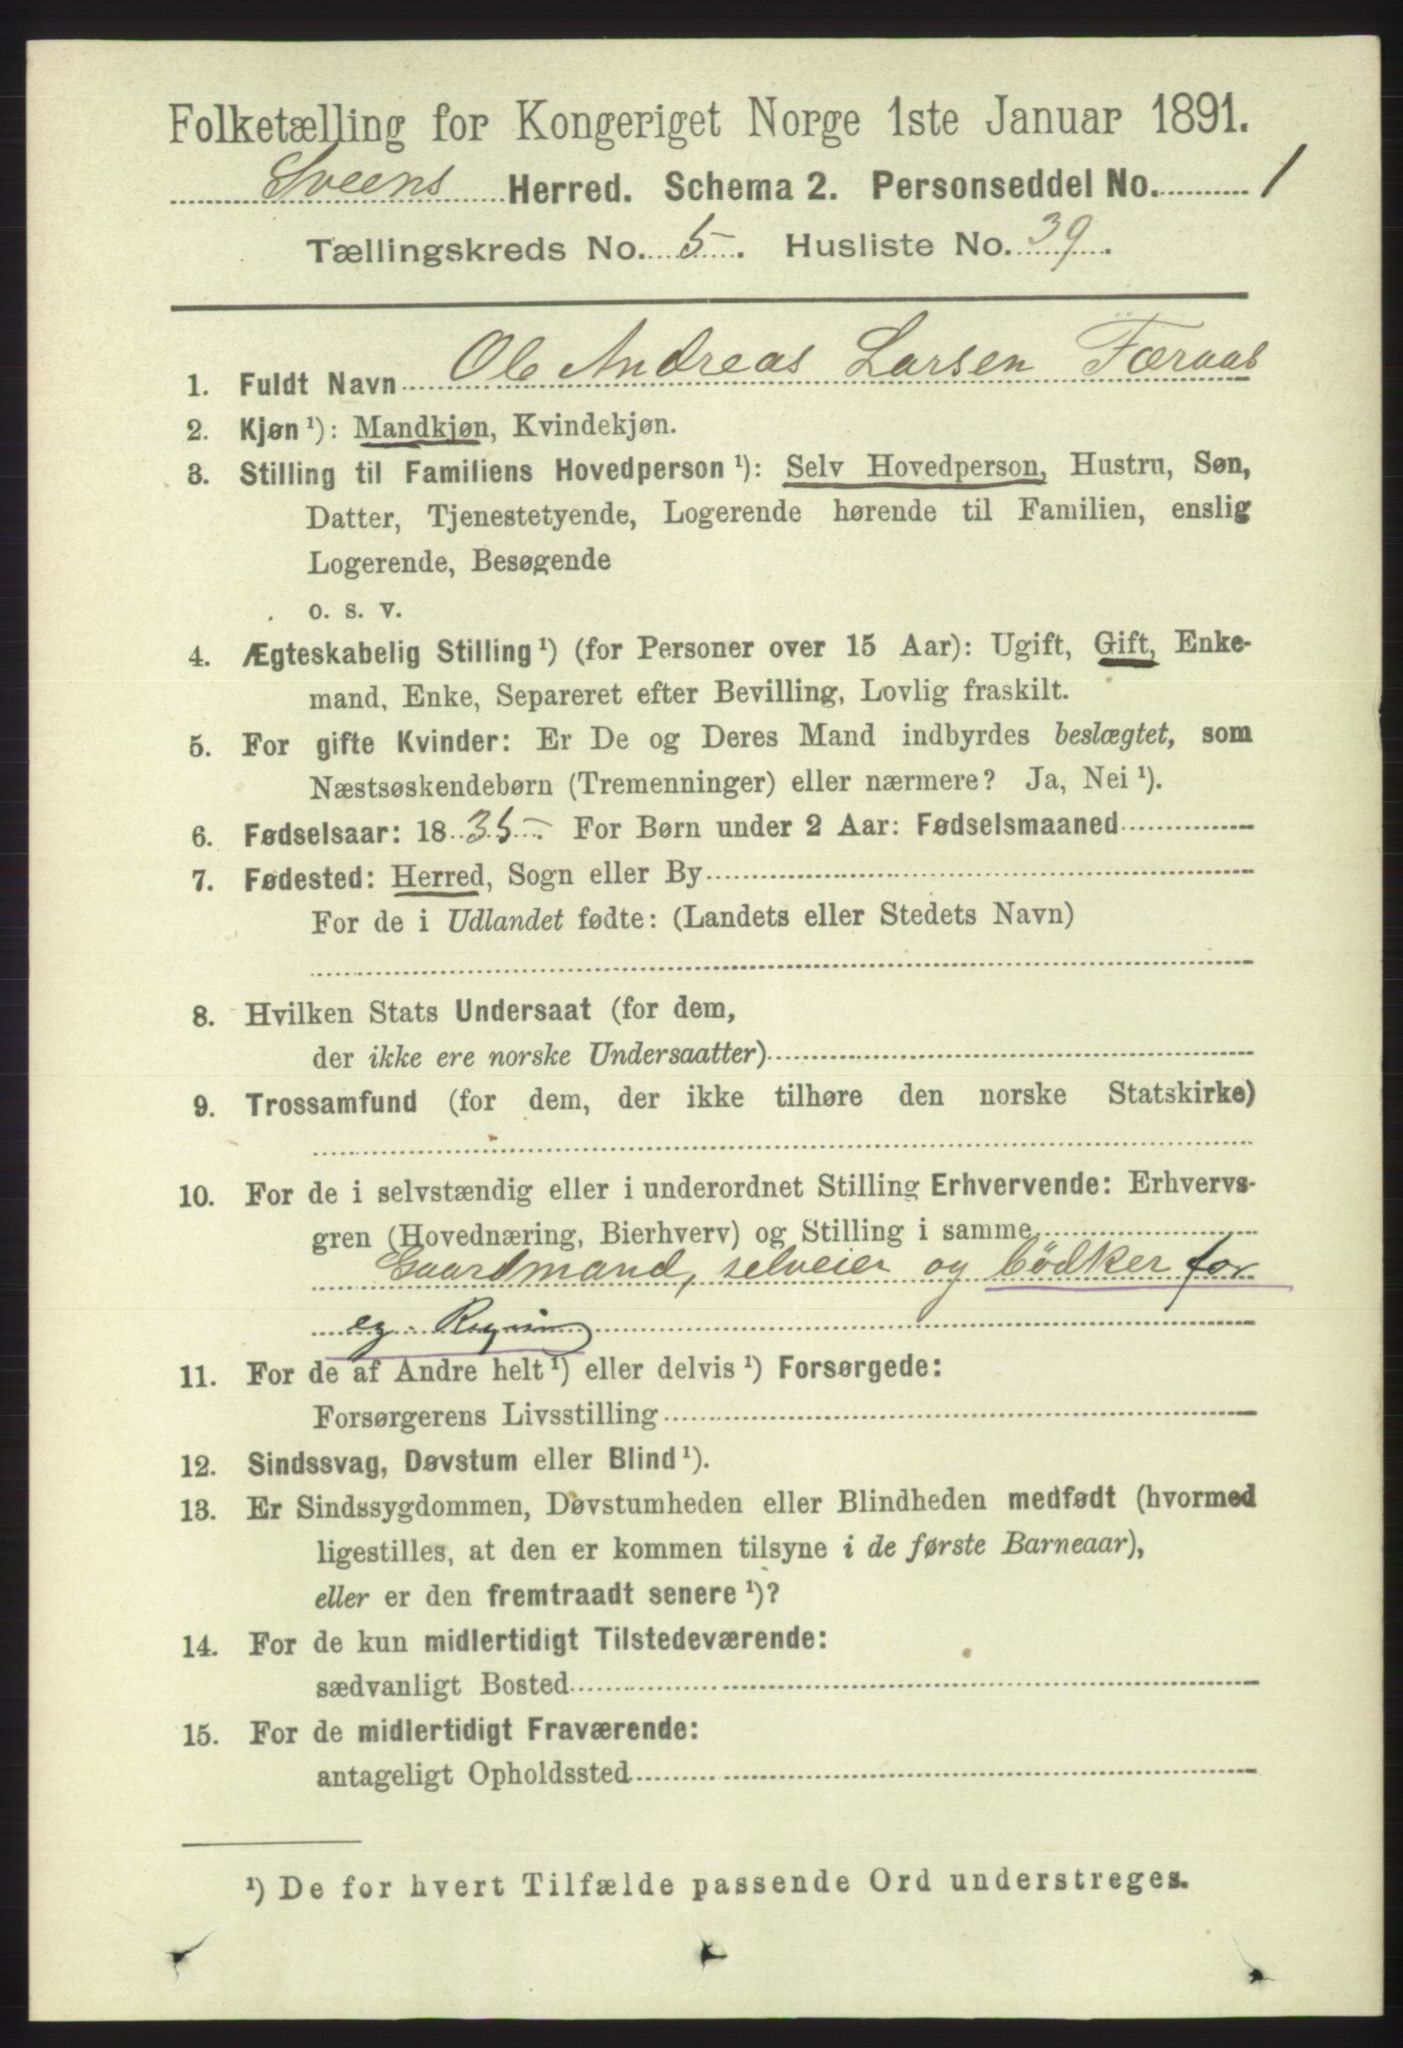 Folketælling for Kongeriget Norge 1ste Januar 1891.
Sveens Herred. Schema 2. Personseddel No. 1
Tællingskreds No. 5. Husliste No. 39.
1. Fuldt Navn Ole Andreas Larsen Færaas
2. Kjøn ¹): Mandkjøn, Kvindekjøn.
3. Stilling til Familiens Hovedperson ¹): Selv Hovedperson, Hustru, Søn,
Datter, Tjenestetyende, Logerende hørende til Familien, enslig
Logerende, Besøgende
o. s. v.
4. Ægteskabelig Stilling ¹) (for Personer over 15 Aar): Ugift, Gift, Enke-
mand, Enke, Separeret efter Bevilling, Lovlig fraskilt.
5. For gifte Kvinder: Er De og Deres Mand indbyrdes beslægtet, som
Næstsøskendebørn (Tremenninger) eller nærmere? Ja, Nei ¹).
6. Fødselsaar: 1835. For Børn under 2 Aar: Fødselsmaaned
7. Fødested: Herred, Sogn eller By
For de i Udlandet fødte: (Landets eller Stedets Navn)
8. Hvilken Stats Undersaat (for dem,
der ikke ere norske Undersaatter)
9. Trossamfund (for dem, der ikke tilhøre den norske Statskirke)
10. For de i selvstændig eller i underordnet Stilling Erhvervende: Erhvervs-
gren (Hovednæring, Bierhverv) og Stilling i samme
Gaardmand, selveier og bödker for
eg. Regning
11. For de af Andre helt ¹) eller delvis ¹) Forsørgede:
Forsørgerens Livsstilling
12. Sindssvag, Døvstum eller Blind ¹).
13. Er Sindssygdommen, Døvstumheden eller Blindheden medfødt (hvormed
ligestilles, at den er kommen tilsyne i de første Barneaar),
eller er den fremtraadt senere ¹)?
14. For de kun midlertidigt Tilstedeværende:
sædvanligt Bosted
15. For de midlertidigt Fraværende:
antageligt Opholdssted
¹) De for hvert Tilfælde passende Ord understreges.